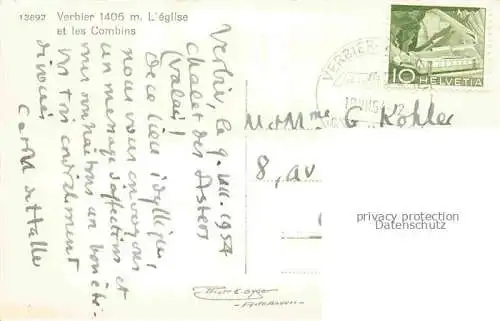 13892 Verbier 1406 m. L'église
et les Combins
Verbier, le 9. VII. 1954
Chalet des Asters
(Valais)
De ce lieu idyllique,
nous vous envoyons
un message d'affection et
vous souhaitons un bon été.
très cordialement
VERBIER
HELVETIA
10
M et Mme G. Kohler
8, av
privacy protection
Datenschutz